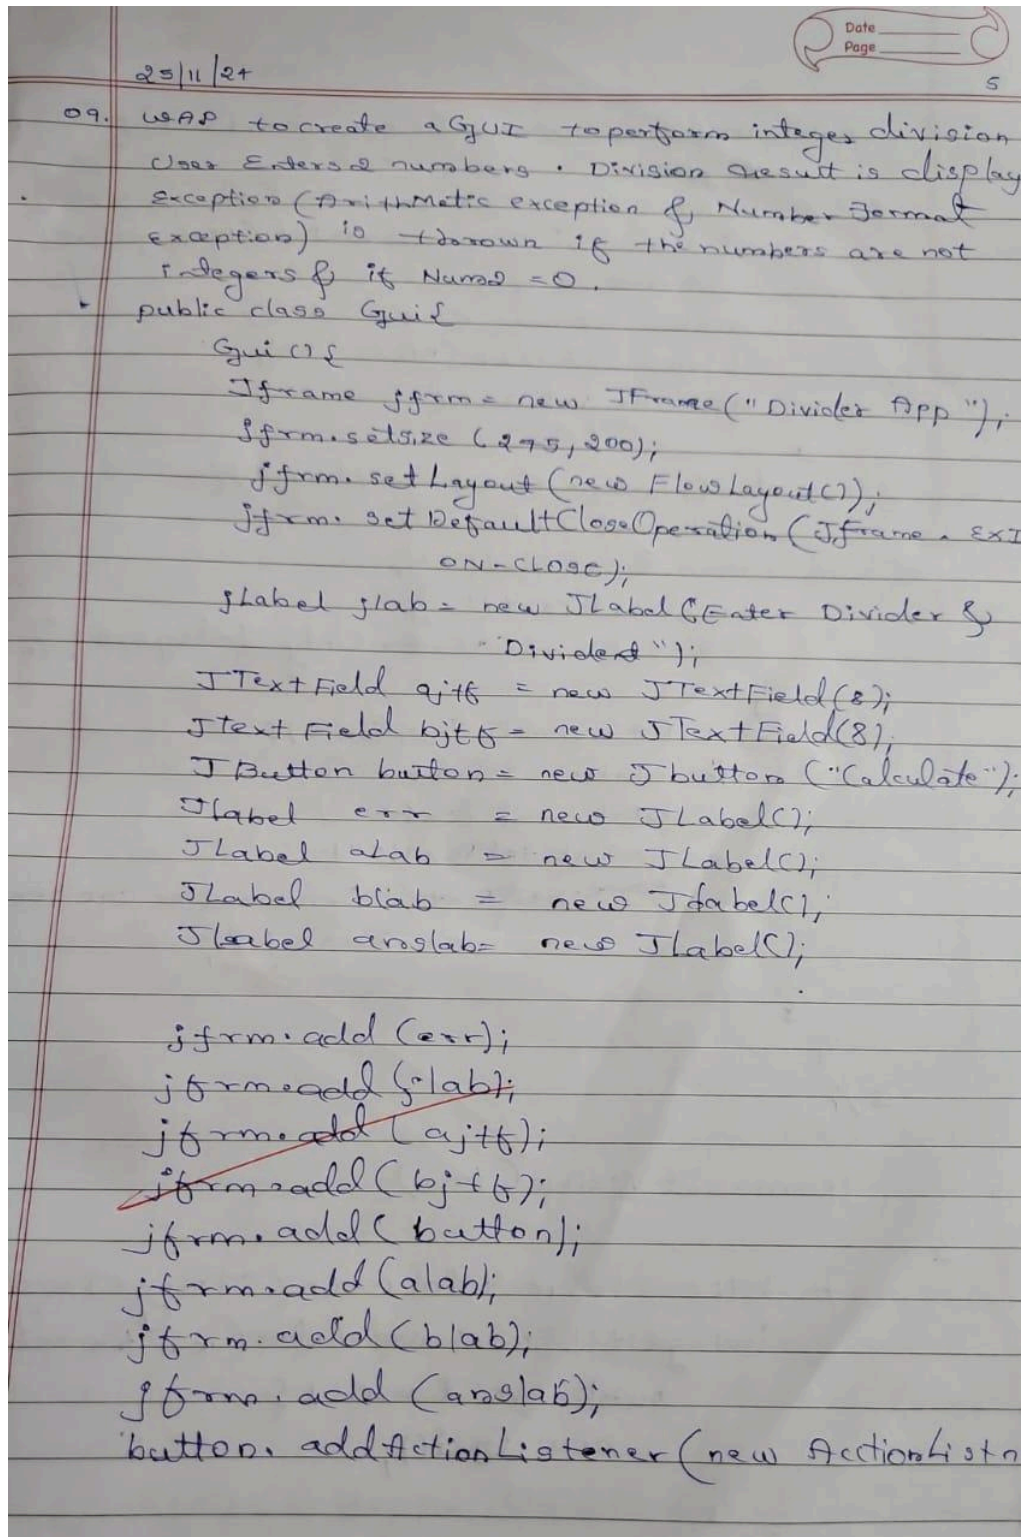 Date
Page
25/11/24
5
09. WAP to create a GUI to perform integer division
User Enters 2 numbers. Division result is display
Exception (ArithMetic exception & Number Format
Exception) is thrown if the numbers are not
integers & if Num2 = 0.
public class Gui{
Gui(){
Jframe jfrm = new JFrame("Divider App");
jfrm.setsize(275,200);
jfrm.setLayout(new FlowLayout());
jfrm.setDefaultCloseOperation(Jframe.EXI
ON-CLOSE);
jLabel jlab = new JLabel("Enter Divider &
Divident");
JTextField ajtf = new JTextField(8);
JText Field bjtf = new JTextField(8);
JButton button = new Jbutton("Calculate");
Jlabel err = new JLabel();
JLabel alab = new JLabel();
JLabel blab = new JLabel();
JLabel anslab= new JLabel();
jfrm.add(err);
jfrm.add(jlab);
jfrm.add(ajtf);
jfrm.add(bjtf);
jfrm.add(button);
jfrm.add(alab);
jfrm.add(blab);
jfrm.add(anslab);
button.addActionListener(new AcctionListn